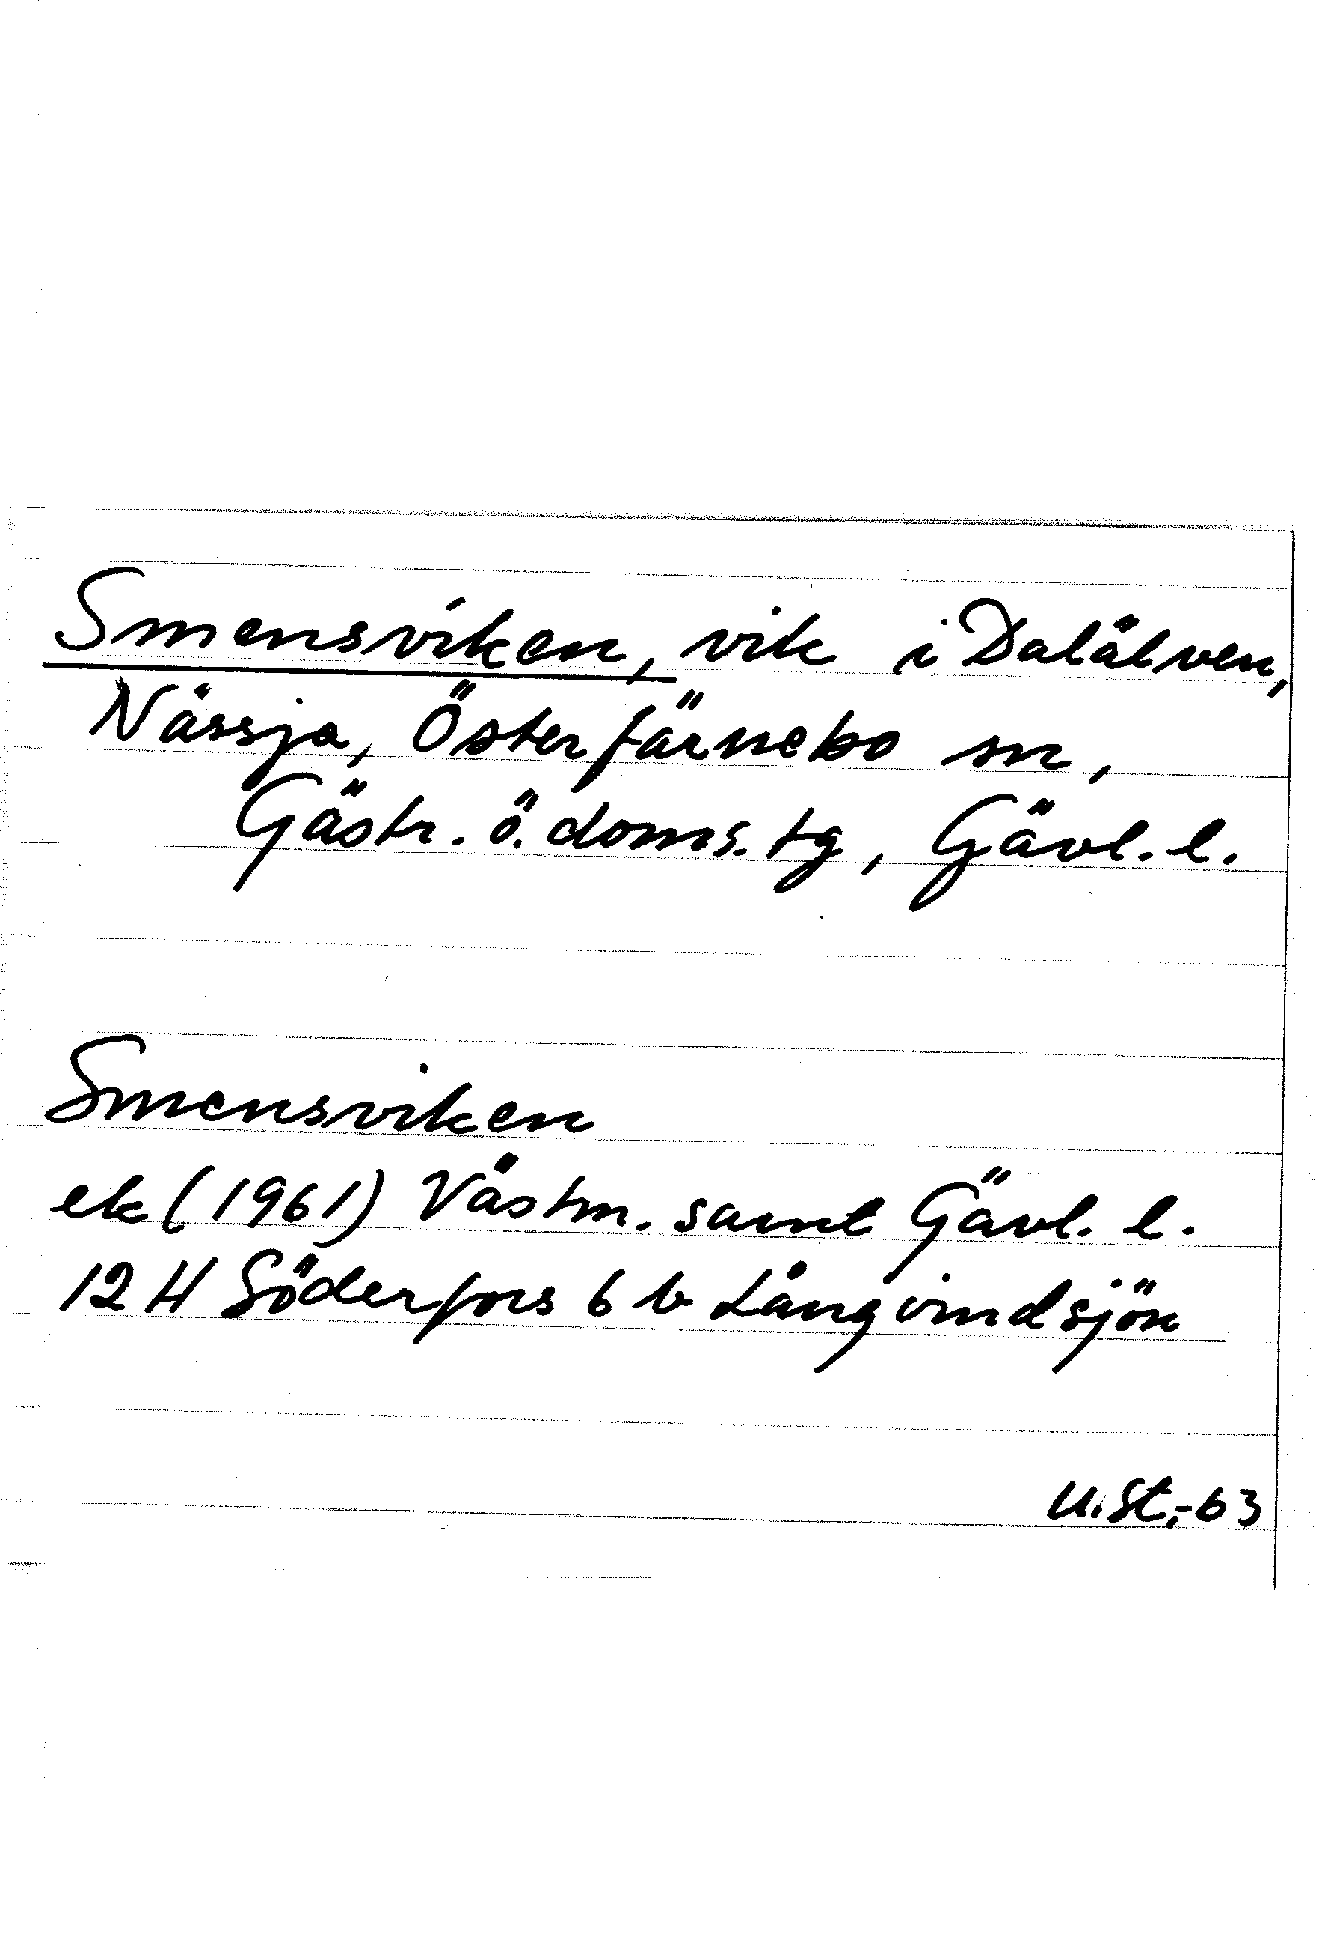 Smensviken, vik i Dalälven,
Nässja, Österfärnebo sn,
Gästr. ö. doms. tg, Gävl. l.
Smensviken
ek (1961) Västm. samt Gävl. l.
12 H Söderfors 6 b Långvindsjön
U.St.-63